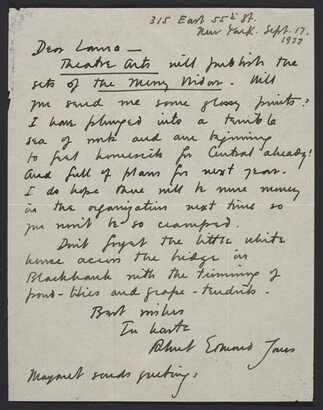 315 East 55th St.
New York. Sept. 17.
1933
Dear Lanna —
Theatre Arts will publish the
sets of the Merry Widow. Will
you send me some glossy prints?
I have plunged into a terrible
sea of work and am beginning
to feel homesick for Central already!
And full of plans for next year.
I do hope there will be more money
in the organization next time so
you won't be so cramped.
Don't forget the little white
house across the bridge in
Blackhawk with the trimming of
pond-lilies and grape-tendrils.
Best wishes
In haste
Robert Edmond Jones
Margaret sends greetings